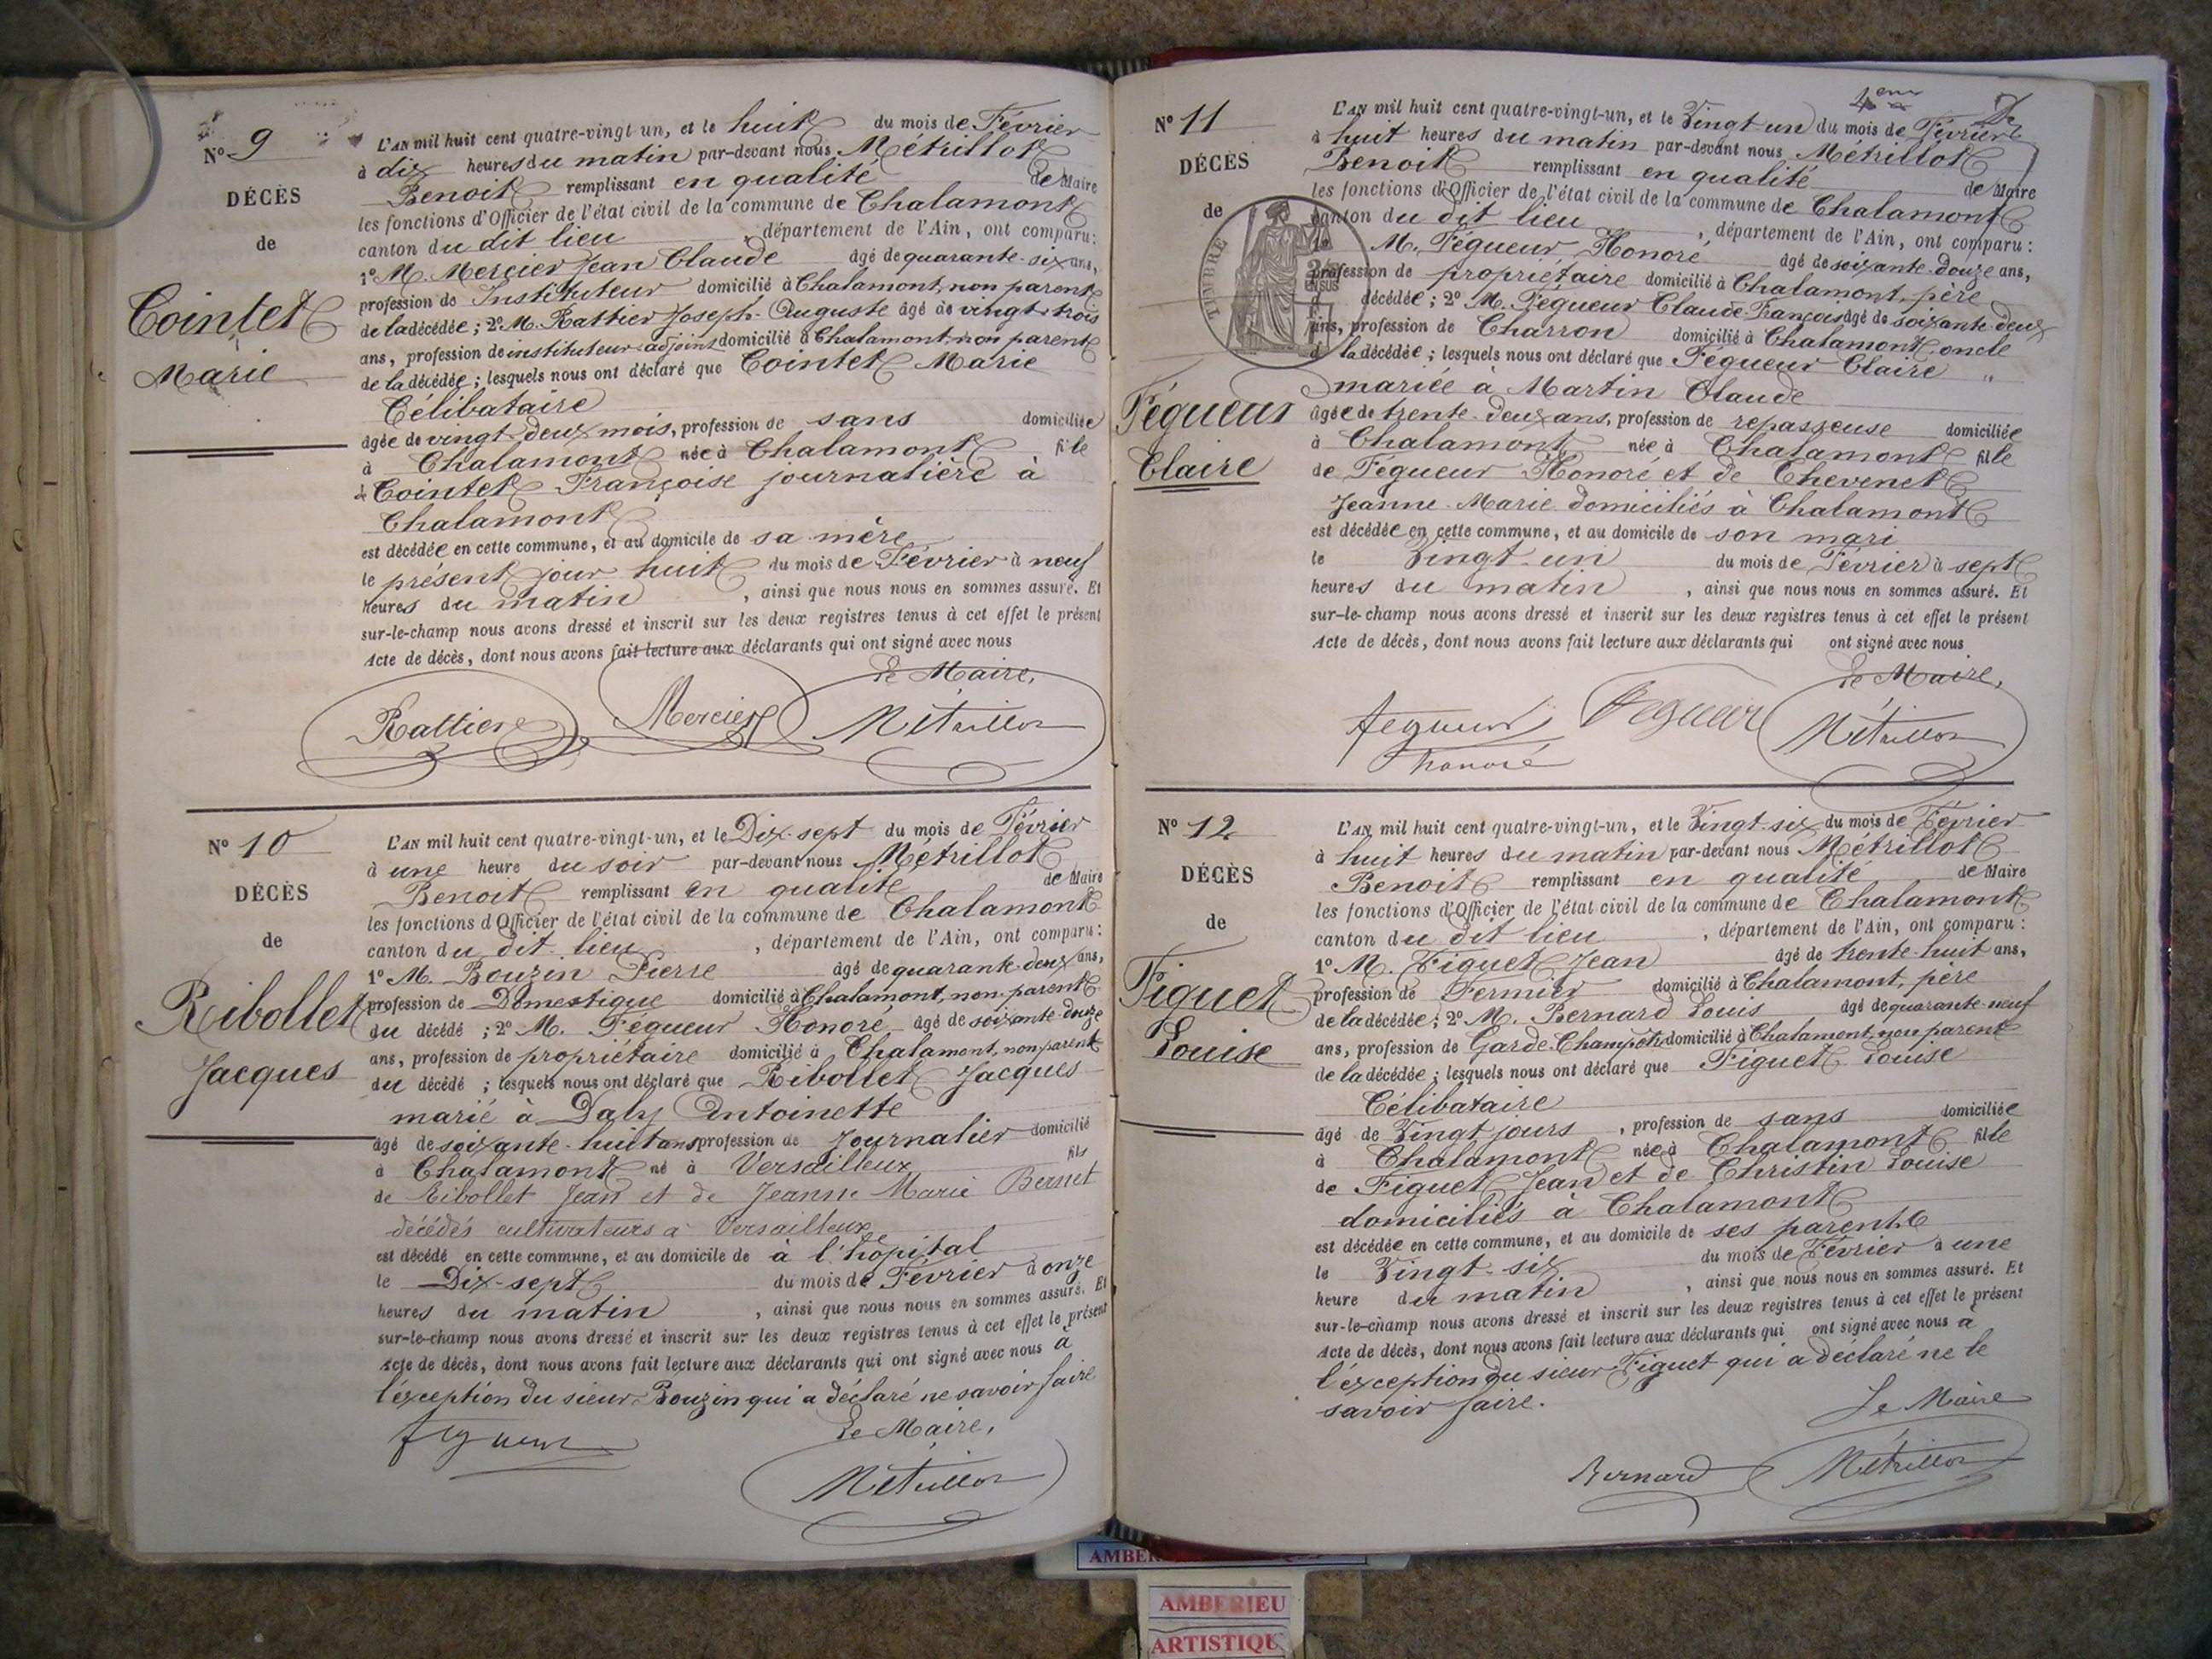 Nº 9
DÉCÈS
de
Cointet
Marie
L'AN mil huit cent quatre-vingt-un, et le huit du mois de Février
à dix heures du matin par-devant nous Métrillot
Benoit remplissant en qualité de Maire
les fonctions d'Officier de l'état civil de la commune de Chalamont
canton du dit lieu, département de l'Ain, ont comparu:
1º M. Mercier Jean Claude âgé de quarante-six ans,
profession de Instituteur domicilié à Chalamont, non parent
de la décédée; 2º M. Rattier Joseph-Auguste âgé de vingt-trois
ans, profession de instituteur-adjoint domicilié à Chalamont, non parent
de la décédée; lesquels nous ont déclaré que Cointet Marie
Célibataire
âgée de vingt-deux mois, profession de sans domiciliée
à Chalamont née à Chalamont fille
de Cointet Françoise journalière à
Chalamont
est décédée en cette commune, et au domicile de sa mère
le présent jour huit du mois de Février à neuf
heures du matin, ainsi que nous nous en sommes assuré. Et
sur-le-champ nous avons dressé et inscrit sur les deux registres tenus à cet effet le présent
Acte de décès, dont nous avons fait lecture aux déclarants qui ont signé avec nous
Le Maire,
Rattier Mercier Métrillot
Nº 10
DÉCÈS
de
Ribollet
Jacques
L'AN mil huit cent quatre-vingt-un, et le Dix-sept du mois de Février
à une heure du soir par-devant nous Métrillot
Benoit remplissant en qualité de Maire
les fonctions d'Officier de l'état civil de la commune de Chalamont
canton du dit lieu, département de l'Ain, ont comparu:
1º M. Bouzin Pierre âgé de quarante-deux ans,
profession de Domestique domicilié à Chalamont, non parent
du décédé; 2º M. Féqueur Honoré âgé de soixante-douze
ans, profession de propriétaire domicilié à Chalamont, non parent
du décédé; lesquels nous ont déclaré que Ribollet Jacques
marié à Daly Antoinette
âgé de soixante-huit ans profession de Journalier domicilié
à Chalamont né à Versailleux fils
de Ribollet Jean et de Jeanne Marie Bernet
décédés cultivateurs à Versailleux
est décédé en cette commune, et au domicile de à l'hôpital
le Dix-sept du mois de Février à onze
heures du matin, ainsi que nous nous en sommes assuré. Et
sur-le-champ nous avons dressé et inscrit sur les deux registres tenus à cet effet le présent
Acte de décès, dont nous avons fait lecture aux déclarants qui ont signé avec nous à
l'éxception du sieur Bouzin qui a déclaré ne savoir faire
Le Maire,
fequeur
Métrillot
4eme
Nº 11
DÉCÈS
de
Féqueur
Claire
L'AN mil huit cent quatre-vingt-un, et le Vingt-un du mois de Février
à huit heures du matin par-devant nous Métrillot
Benoit remplissant en qualité de Maire
les fonctions d'Officier de l'état civil de la commune de Chalamont
canton du dit lieu, département de l'Ain, ont comparu:
TIMBRE
1º M. Féqueur Honoré âgé de soixante-douze ans,
profession de propriétaire domicilié à Chalamont, père
d décédée; 2º M. Féqueur Claude-François âgé de soixante-deux
ans, profession de Charron domicilié à Chalamont, oncle
d la décédée; lesquels nous ont déclaré que Féqueur Claire
mariée à Martin Claude
âgée de trente-deux ans, profession de repasseuse domiciliée
à Chalamont née à Chalamont fille
de Féqueur Honoré et de Chevenet
Jeanne-Marie domiciliés à Chalamont
est décédée en cette commune, et au domicile de son mari
le Vingt-un du mois de Février à sept
heures du matin, ainsi que nous nous en sommes assuré. Et
sur-le-champ nous avons dressé et inscrit sur les deux registres tenus à cet effet le présent
Acte de décès, dont nous avons fait lecture aux déclarants qui ont signé avec nous
Le Maire,
fequeur honoré Fequeur Métrillot
Nº 12
DÉCÈS
de
Figuet
Louise
L'AN mil huit cent quatre-vingt-un, et le Vingt-six du mois de Février
à huit heures du matin par-devant nous Métrillot
Benoit remplissant en qualité de Maire
les fonctions d'Officier de l'état civil de la commune de Chalamont
canton du dit lieu, département de l'Ain, ont comparu:
1º M. Figuet Jean âgé de trente-huit ans,
profession de Fermier domicilié à Chalamont, père
de la décédée; 2º M. Bernard Louis âgé de quarante-neuf
ans, profession de Garde-Champêtre domicilié à Chalamont, non parent
de la décédée; lesquels nous ont déclaré que Figuet Louise
Célibataire
âgé de Vingt jours, profession de sans domiciliée
à Chalamont née à Chalamont fille
de Figuet Jean et de Christin Louise
domiciliés à Chalamont
est décédée en cette commune, et au domicile de ses parents
le Vingt-six du mois de Février à une
heure du matin, ainsi que nous nous en sommes assuré. Et
sur-le-champ nous avons dressé et inscrit sur les deux registres tenus à cet effet le présent
Acte de décès, dont nous avons fait lecture aux déclarants qui ont signé avec nous à
l'éxception du sieur Figuet qui a déclaré ne le
savoir faire.
Le Maire
Bernard Métrillot
AMBERIEU
ARTISTIQUE